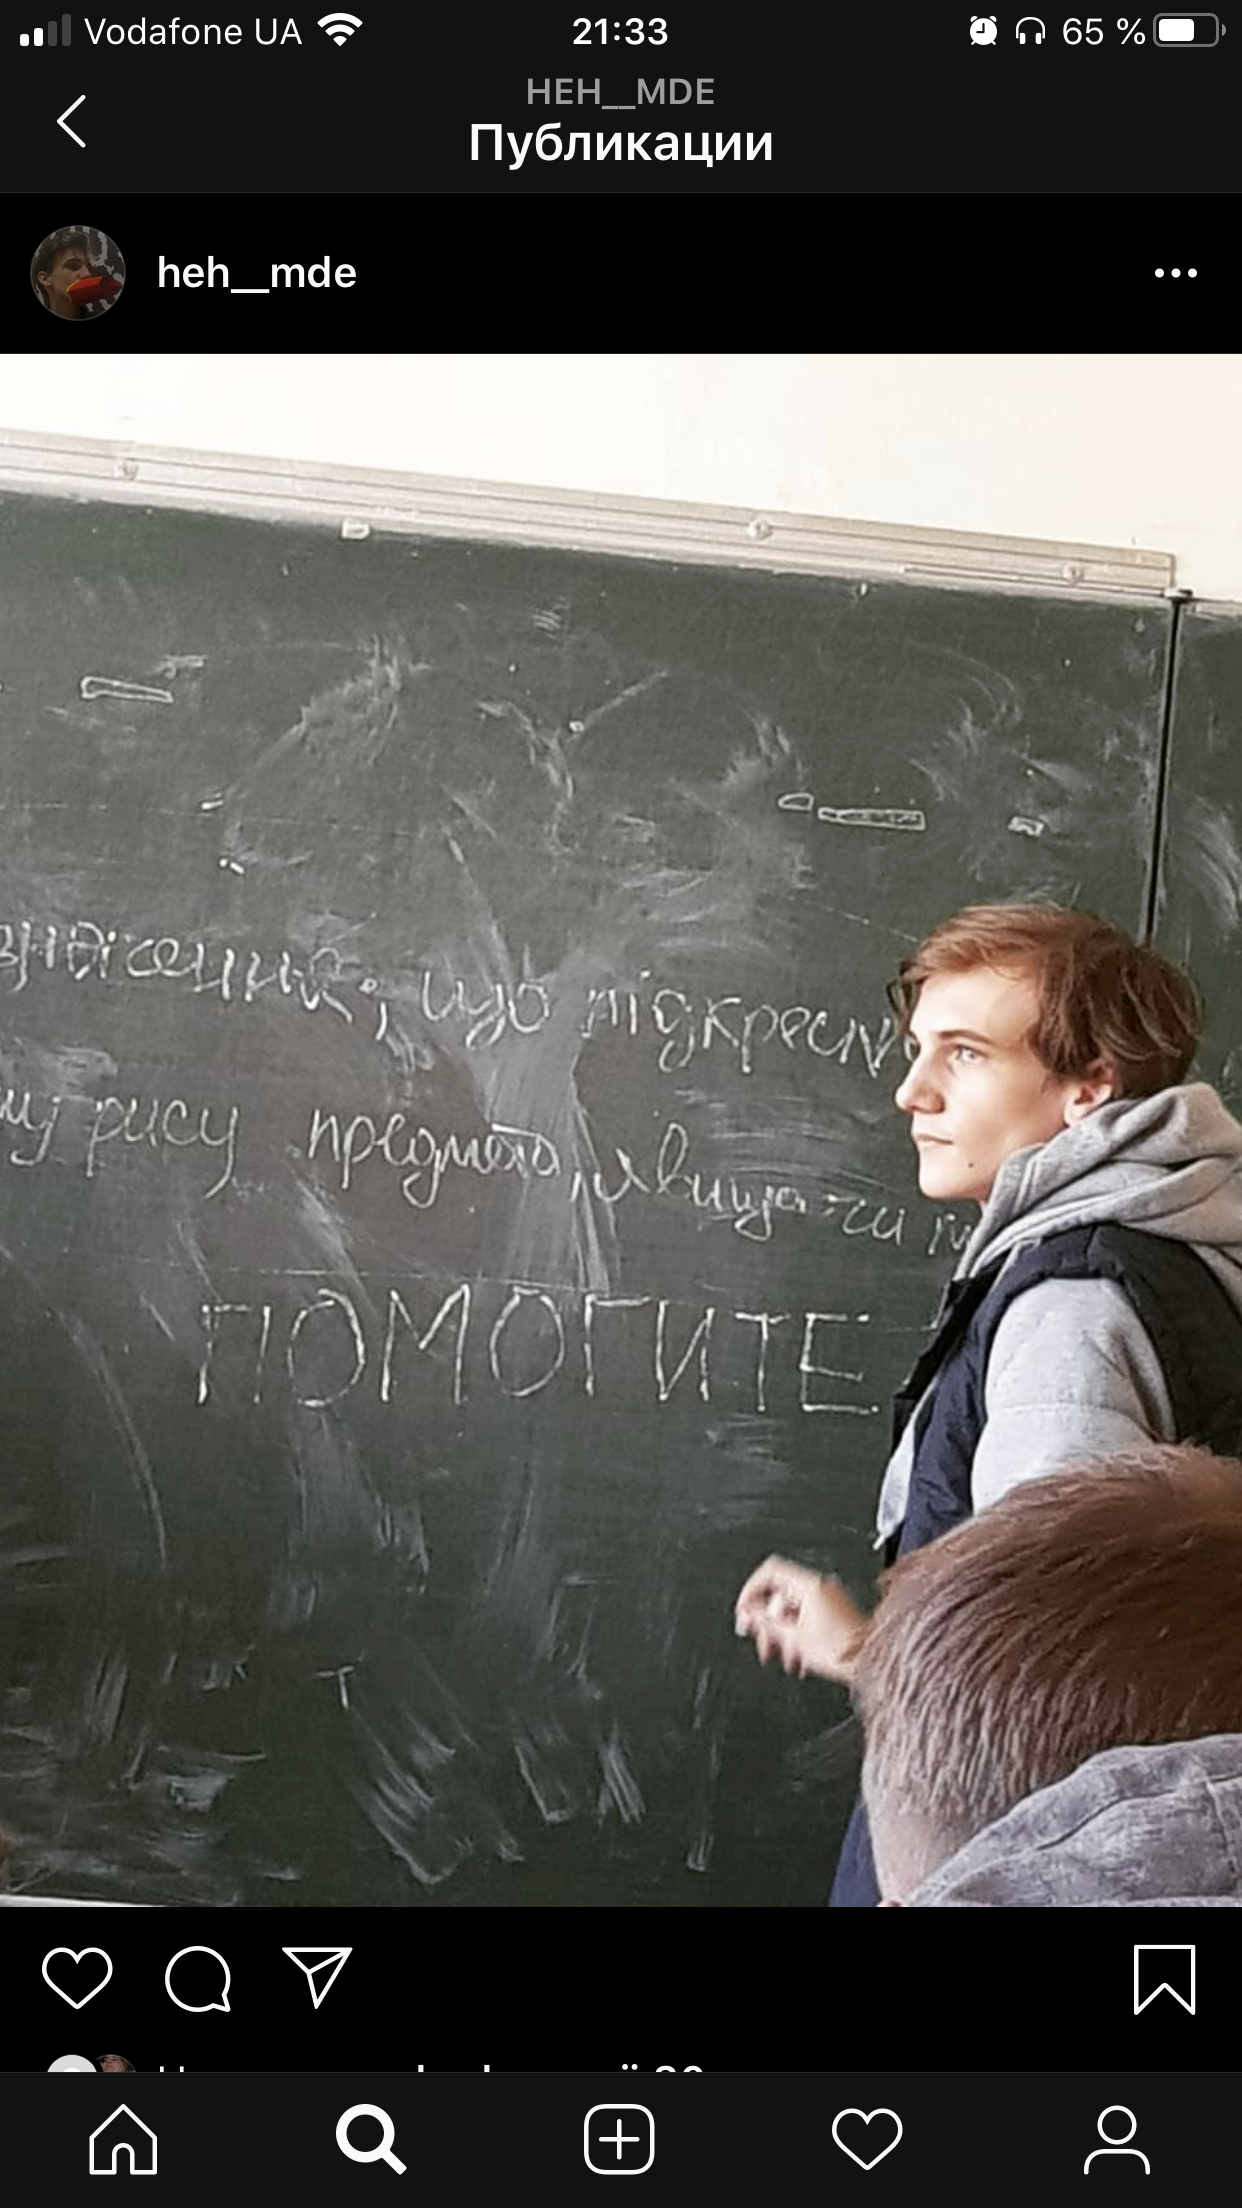 Vodafone UA 21:33 65 %
HEH__MDE
Публикации
heh__mde
що підкресл
рису предмета, явища чи
ПОМОГИТЕ